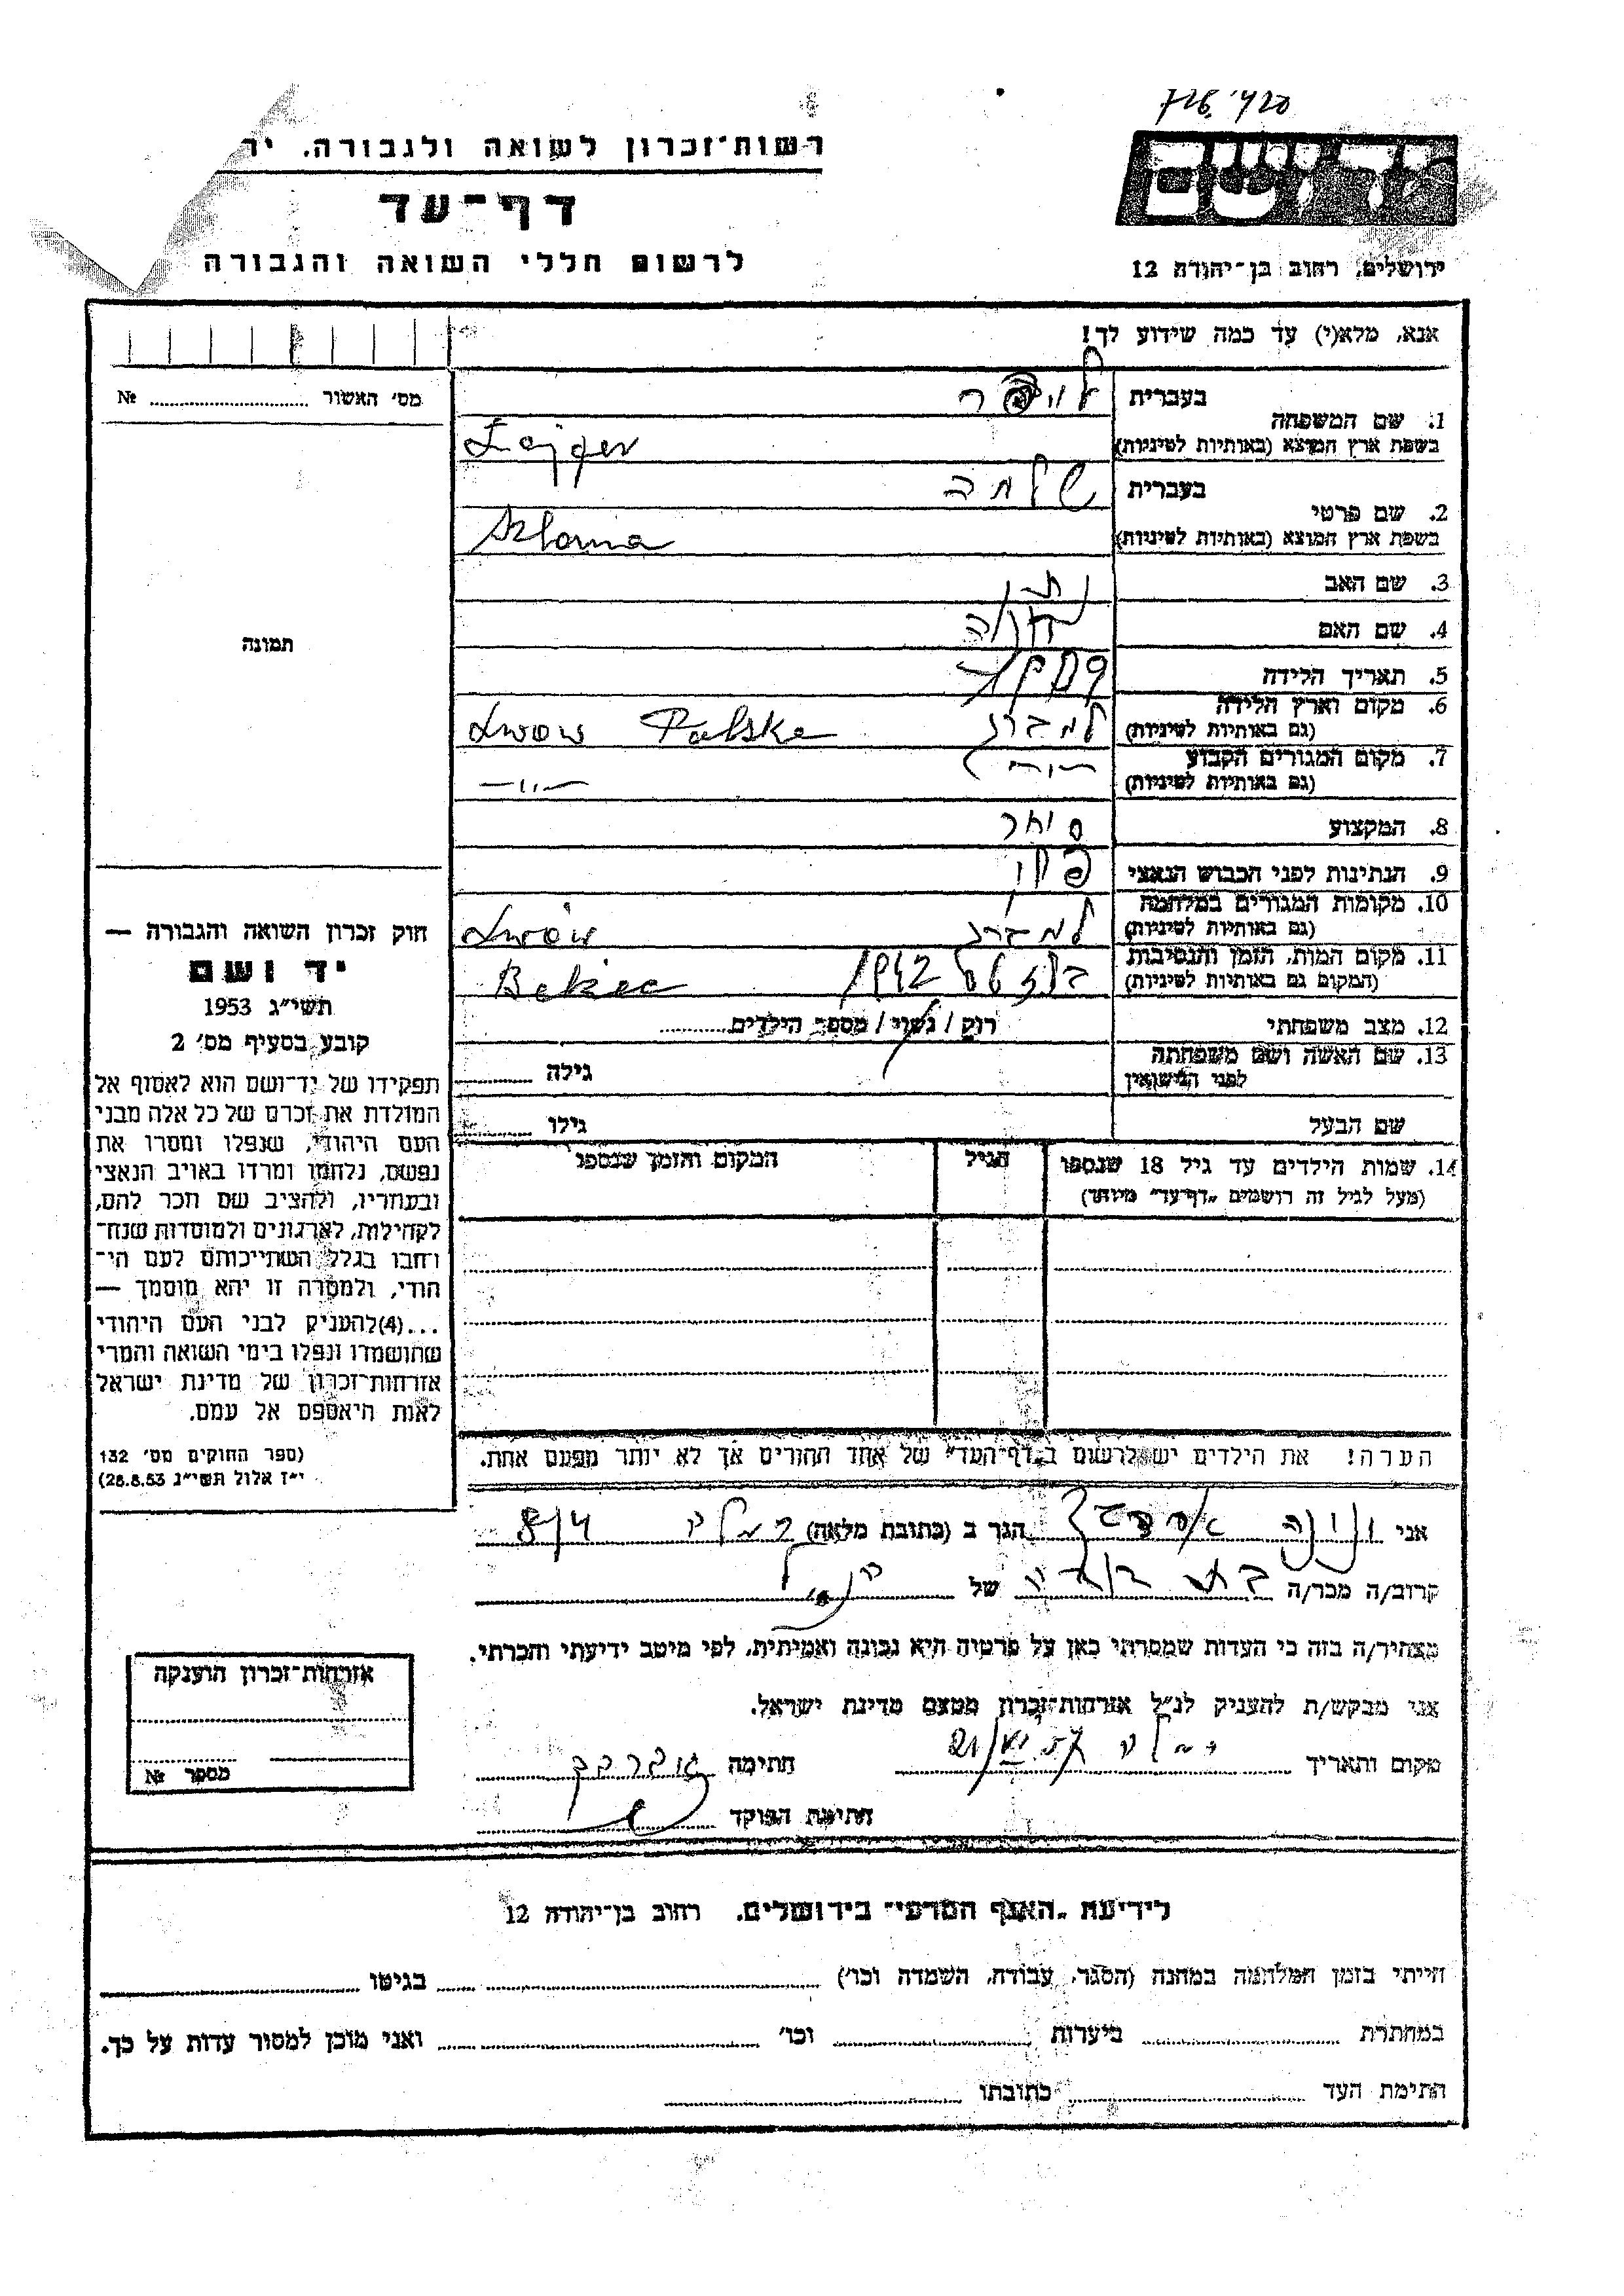 רשות־זכרון לשואה ולגבורה. יד
דף־עד
לרשום חללי השואה והגבורה
יד ושם
ירושלים, רחוב בן־יהודה 12
אנא, מלא(י) עד כמה שידוע לך!
מס׳ האשור №
תמונה
1. שם המשפחה
בעברית
בשפת ארץ המוצא (באותיות לטיניות)
2. שם פרטי
בעברית שלמה
בשפת ארץ המוצא (באותיות לטיניות) Szloma
3. שם האב נתן
4. שם האם
5. תאריך הלידה
6. מקום וארץ הלידה
(גם באותיות לטיניות) למברג Lwow Polska
7. מקום המגורים הקבוע
(גם באותיות לטיניות) —״—
8. המקצוע סוחר
9. הנתינות לפני הכבוש הנאצי
10. מקומות המגורים במלחמה
(גם באותיות לטיניות) למברג Lwow
11. מקום המות, הזמן והנסיבות
(המקום גם באותיות לטיניות) 1942
12. מצב משפחתי רוק / נשוי / מספר הילדים
13. שם האשה ושם משפחתה
לפני הנישואין גילה
שם הבעל גילו
14. שמות הילדים עד גיל 18 שנספו
(מעל לגיל זה רושמים „דף־עד״ מיוחד)
הגיל
המקום והזמן שנספו
הערה! את הילדים יש לרשום ב„דף־העד״ של אחד ההורים אך לא יותר מפעם אחת.
חוק זכרון השואה והגבורה —
יד ושם
תשי״ג 1953
קובע בסעיף מס׳ 2
תפקידו של יד־ושם הוא לאסוף אל
המולדת את זכרם של כל אלה מבני
העם היהודי, שנפלו ומסרו את
נפשם, נלחמו ומרדו באויב הנאצי
ובעוזריו, ולהציב שם וזכר להם,
לקהילות, לארגונים ולמוסדות שנח־
רחבו בגלל השתייכותם לעם הי־
הודי, ולמטרה זו יהא מוסמך —
...(4)להעניק לבני העם היהודי
שהושמדו ונפלו בימי השואה והמרי
אזרחות־זכרון של מדינת ישראל
לאות היאספם אל עמם.
(ספר החוקים מס׳ 132
י״ז אלול תשי״ג 28.8.53)
אני הגר ב (כתובת מלאה) רמלה
קרוב/ה מכר/ה בת דודה של הנ״ל
מצהיר/ה בזה כי העדות שמסרתי כאן על פרטיה היא נכונה ואמיתית, לפי מיטב ידיעתי והכרתי.
אני מבקש/ת להעניק לנ״ל אזרחות־זכרון מטעם מדינת ישראל.
מקום ותאריך רמלה חתימה
חתימת הפוקד
אזרחות־זכרון הוענקה
מספר №
לידיעת „האגף המדעי״ בירושלים. רחוב בן־יהודה 12
הייתי בזמן המלחמה במחנה (הסגר, עבודה, השמדה וכו׳) בגיטו
במחתרת ביערות וכו׳ ואני מוכן למסור עדות על כך.
חתימת העד כתובתו